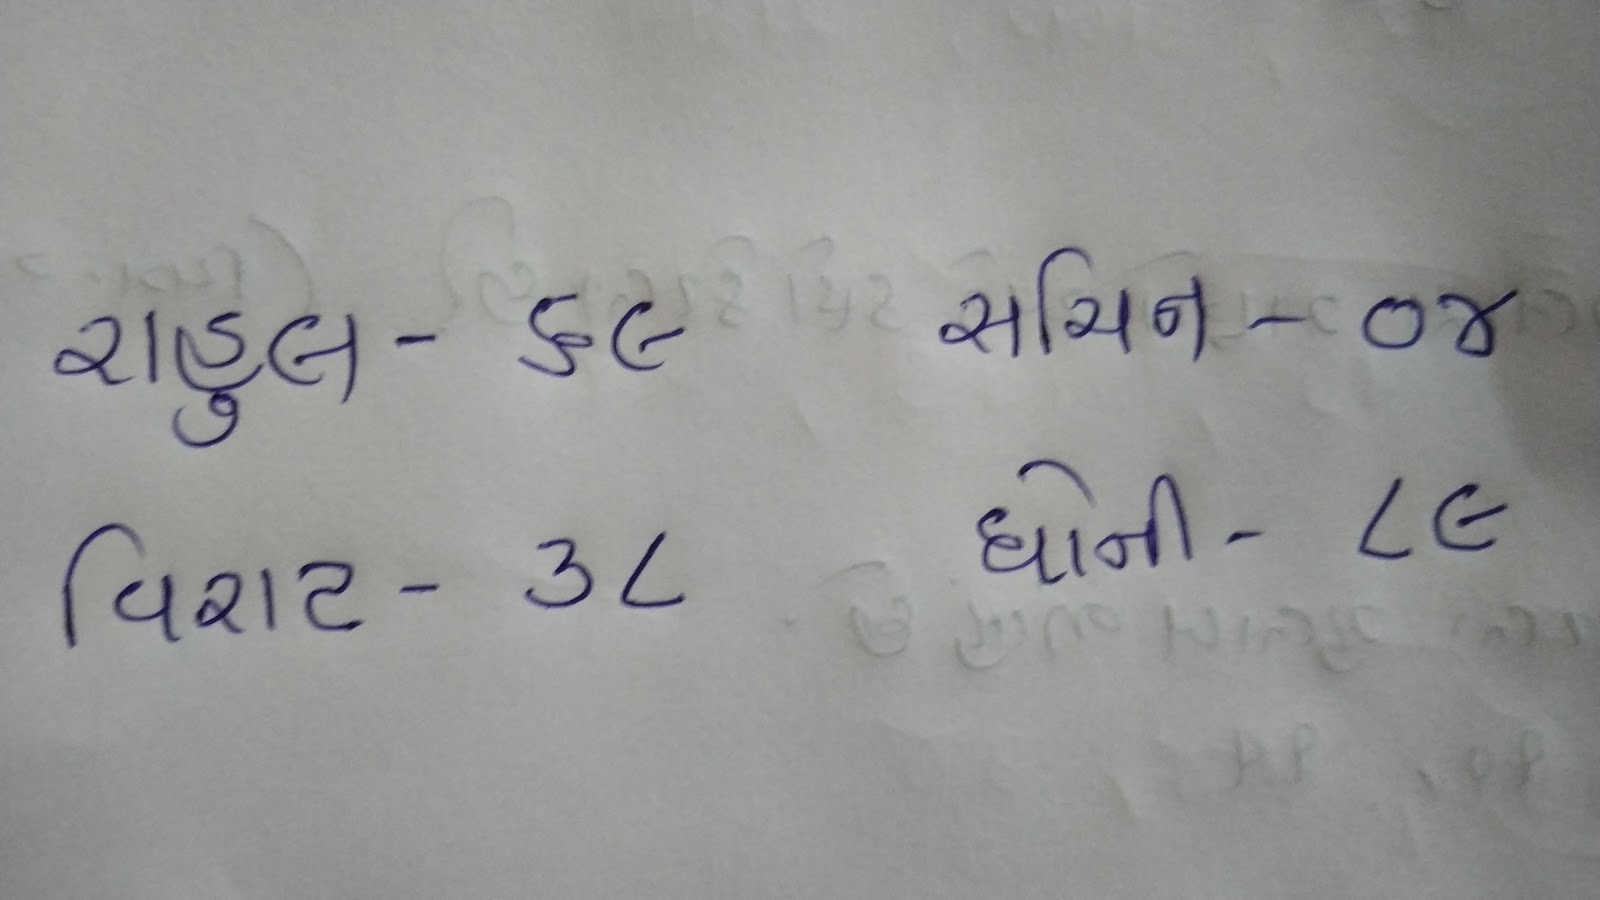 રાહુલ - ૬૯ સચિન - ૦૪
વિરાટ - ૩૮ ધોની - ૮૯